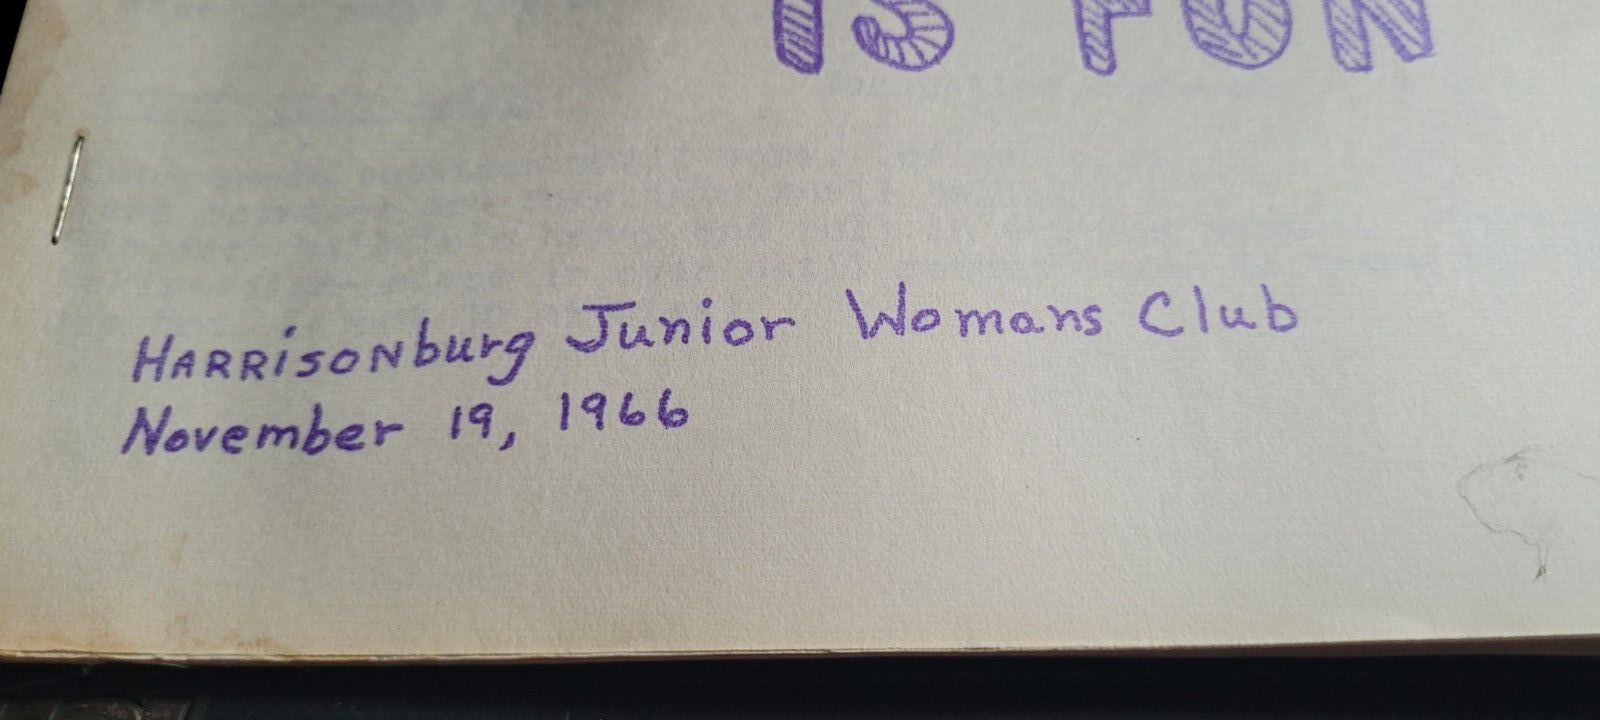 IS FUN
HARRiSONburg Junior Womans Club
November 19, 1966